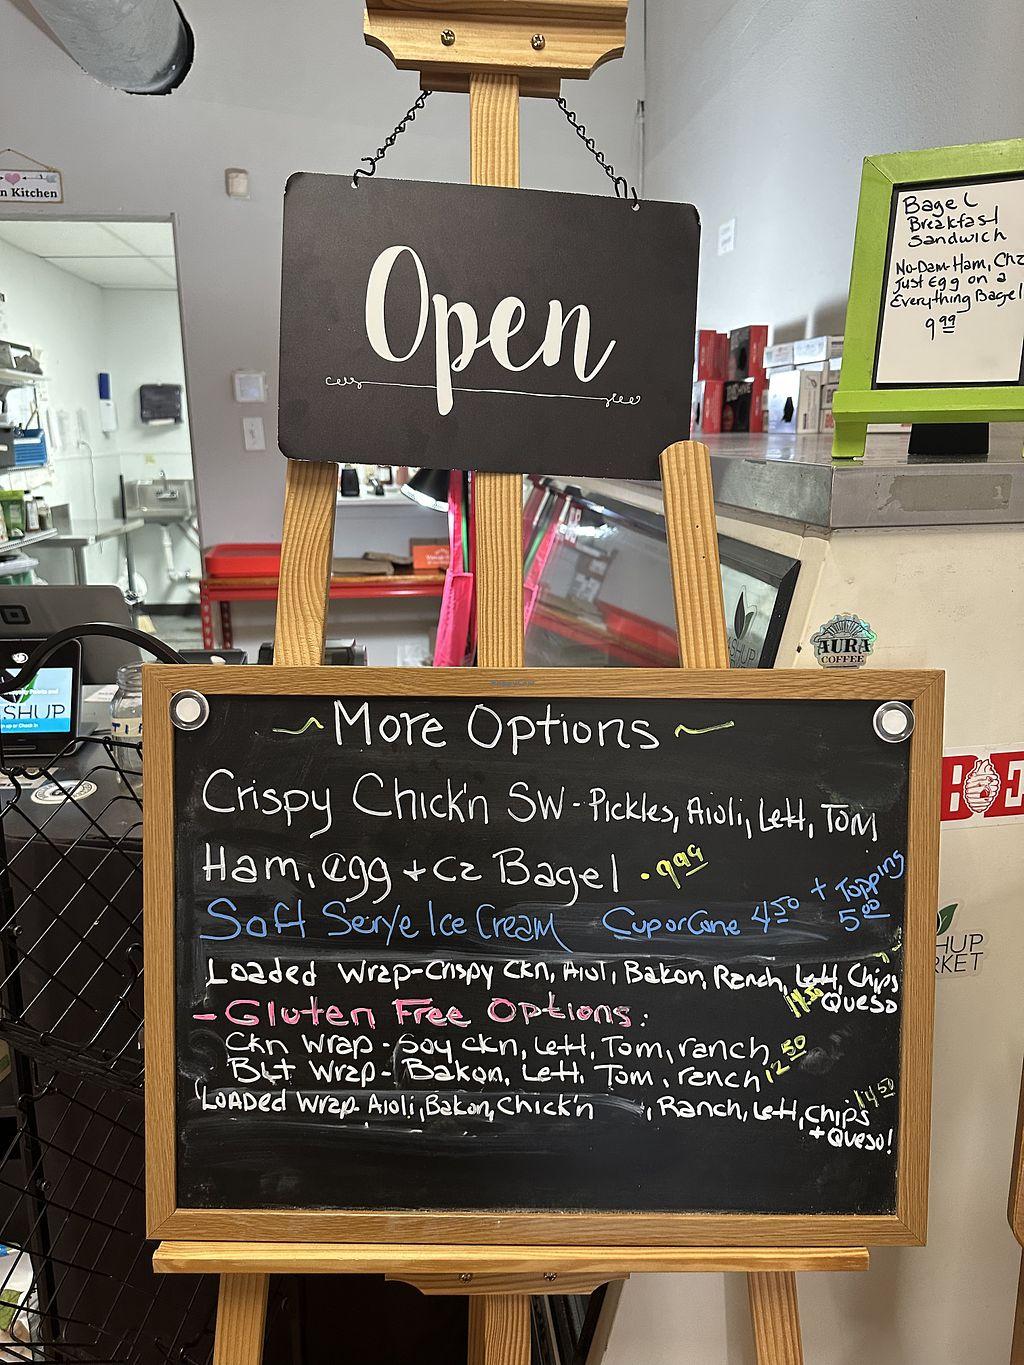 n Kitchen
Open
Bagel
Breakfast
Sandwich
No-Dam-Ham, Chz
Just Egg on a
Everything Bagel
9 99
AURA
COFFEE
SHUP
~ More Options ~
Crispy Chick'n SW - Pickles, Aioli, Lett, Tom
Ham, egg + cz Bagel . 9 99
Soft Serve Ice Cream Cup or Cone 4 50 + Topping 5 00
Loaded Wrap-Crispy Ckn, Aioli, Bakon, Ranch, Lett, Chips
14 50 Queso
- Gluten Free Options:
Ckn Wrap - Soy ckn, Lett, Tom, ranch 12 50
Blt Wrap - Bakon, Lett, Tom, ranch
Loaded Wrap- Aioli, Bakon, Chick'n , Ranch, Lett, Chips 14 50
+ Queso!
BE
SHUP
RKET